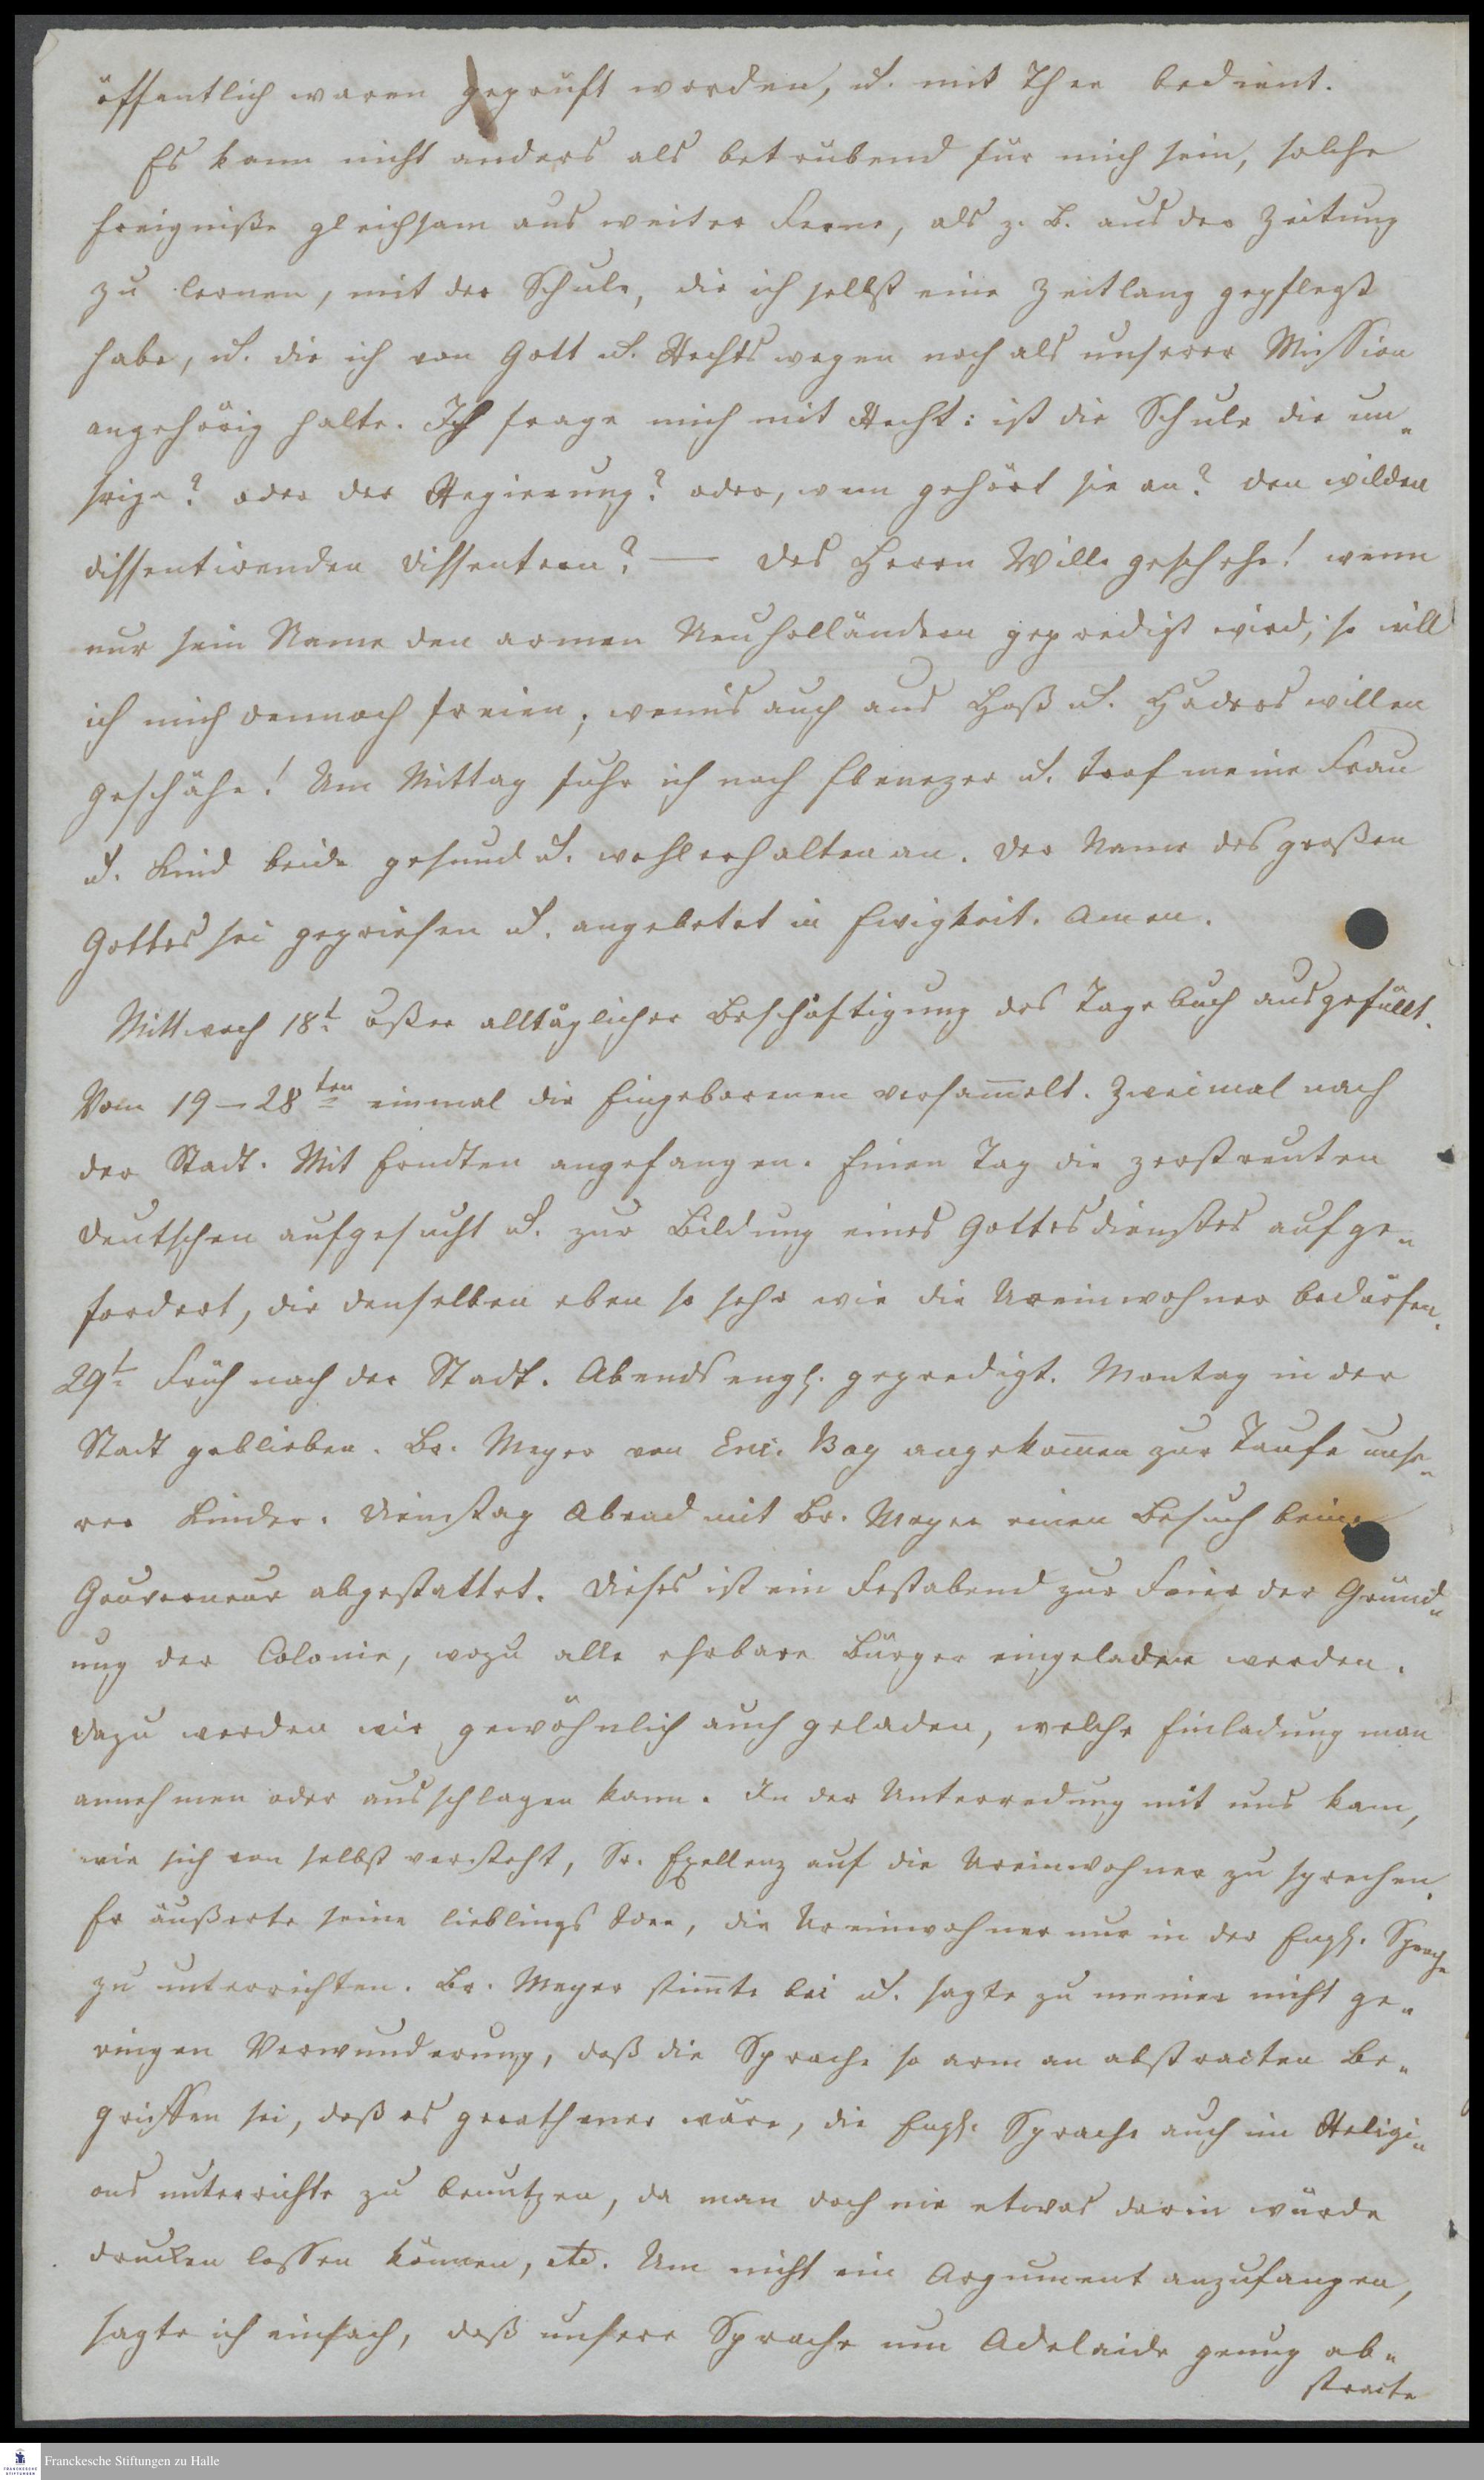 öffentlich waren geprüft worden, u. mit Thee bedient.
Es kann nicht anders als betrübend für mich sein, solche
Ereigniße gleichsam aus weiter Ferne, als z. B. aus der Zeitung
zu lernen, mit der Schule, die ich selbst eine Zeitlang gepflegt
habe, u. die ich von Gott u. Rechts wegen noch als unserer Mission
angehörig halte. Ich frage mich mit Recht: ist die Schule die un-
srige? oder der Regierung? oder, wem gehört sie an? den wilden
dissentirenden Dissentern? — Des Herrn Wille geschehe! wenn
nur sein Name den armen Neuholländern gepredigt wird; so will
ich mich dennoch freuen, wenn's auch aus Haß u. Haders willen
geschähe! Um Mittag fuhr ich nach Ebenezer u. traf meine Frau
u. Kind beide gesund u. wohlerhalten an. Der Name des großen
Gottes sei gepriesen u. angebetet in Ewigkeit. Amen.
Mittwoch 18t. außer alltäglicher Beschäftigung das Tagebuch ausgefüllt.
Vom 19–28ten einmal die Eingebornen versam̄elt. Zweimal nach
der Stadt. Mit Erndten angefangen. Einen Tag die zerstreuten
Deutschen aufgesucht u. zur Bildung eines Gottesdienstes aufge-
fordert, die denselben eben so sehr wie die Ureinwohner bedürfen.
29t. Früh nach der Stadt. Abends engl. gepredigt. Montag in der
Stadt geblieben. Br. Meyer von Enc. Bay angekom̄en zur Taufe unse-
rer Kinder. Dienstag Abend mit Br. Meyer einen Besuch beim
Gouverneur abgestattet. Dieses ist ein Festabend zur Feier der Gründ-
ung der Colonie, wozu alle ehrbare Bürger eingeladen werden.
Dazu werden wir gewöhnlich auch geladen, welche Einladung man
annehmen oder ausschlagen kann. In der Unterredung mit uns kam,
wie sich von selbst versteht, Sr. Exellenz auf die Ureinwohner zu sprechen.
Er äußerte seine lieblings Idee, die Ureinwohner nur in der Engl. Sprache
zu unterrichten. Br. Meyer stim̄te bei u. sagte zu meiner nicht ge-
ringen Verwunderung, daß die Sprache so arm an abstracten Be-
griffen sei, daß es gerathener wäre, die Engl. Sprache auch im Religi-
onsunterrichte zu benutzen, da man doch nie etwas darin würde
drucken lassen können, etc. Um nicht ein Argument anzufangen,
sagte ich einfach, daß unsere Sprache um Adelaide genug ab-
stracte
Franckesche Stiftungen zu Halle